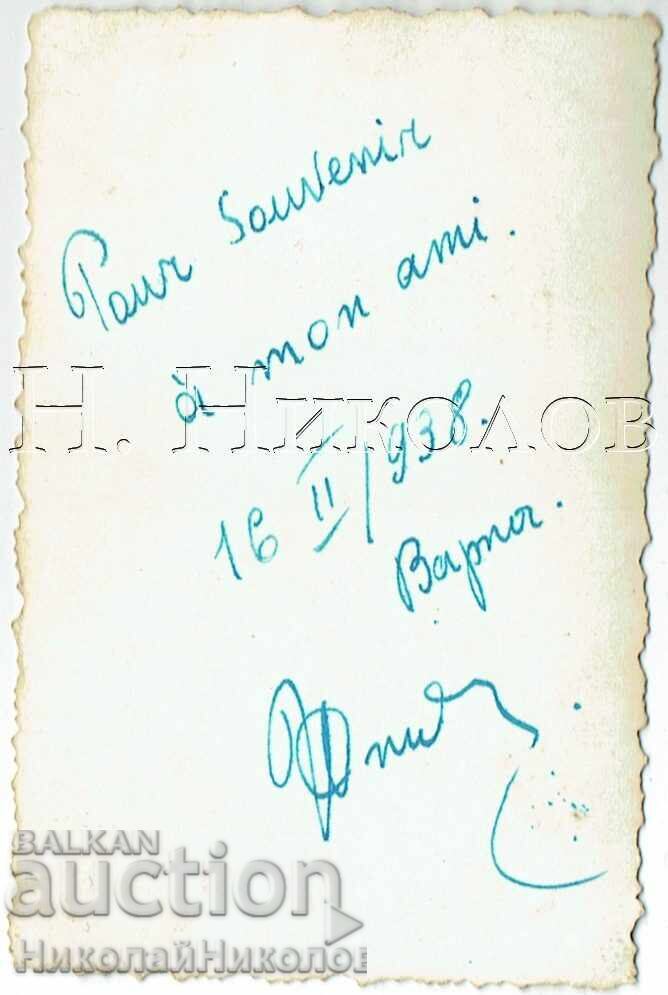 Pour Souvenir
à mon ami.
Н. Николов
16 II/938.
Варна.
BALKAN
auction
НиколайНиколов